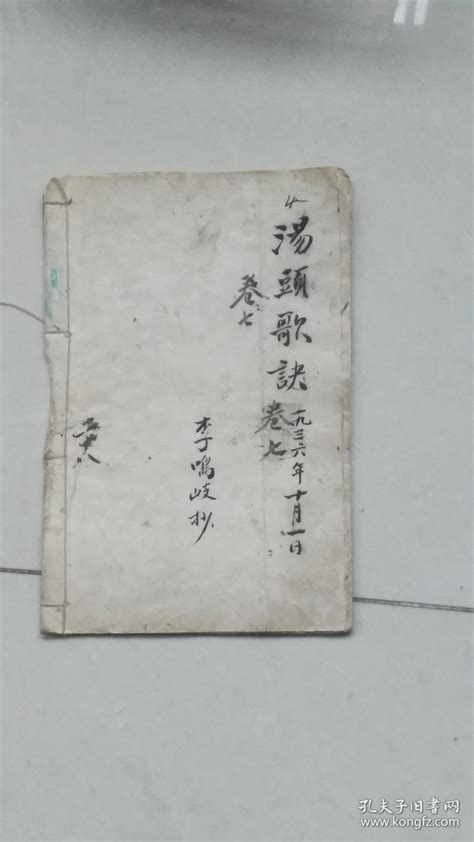 湯頭歌訣
卷七
一九三六年十月一日
卷七
李鳴岐抄
孔夫子旧书网
www.kongfz.com